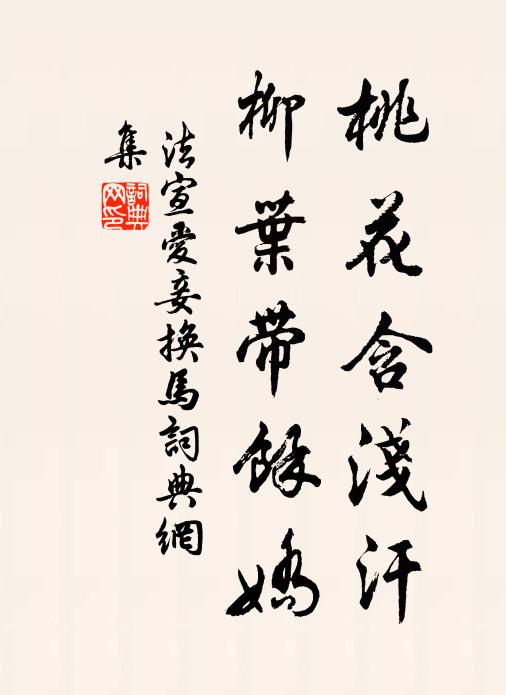 桃花含淺汗
柳葉帶餘嬌
法宣愛妾換馬詞典網
集
詞典
网印